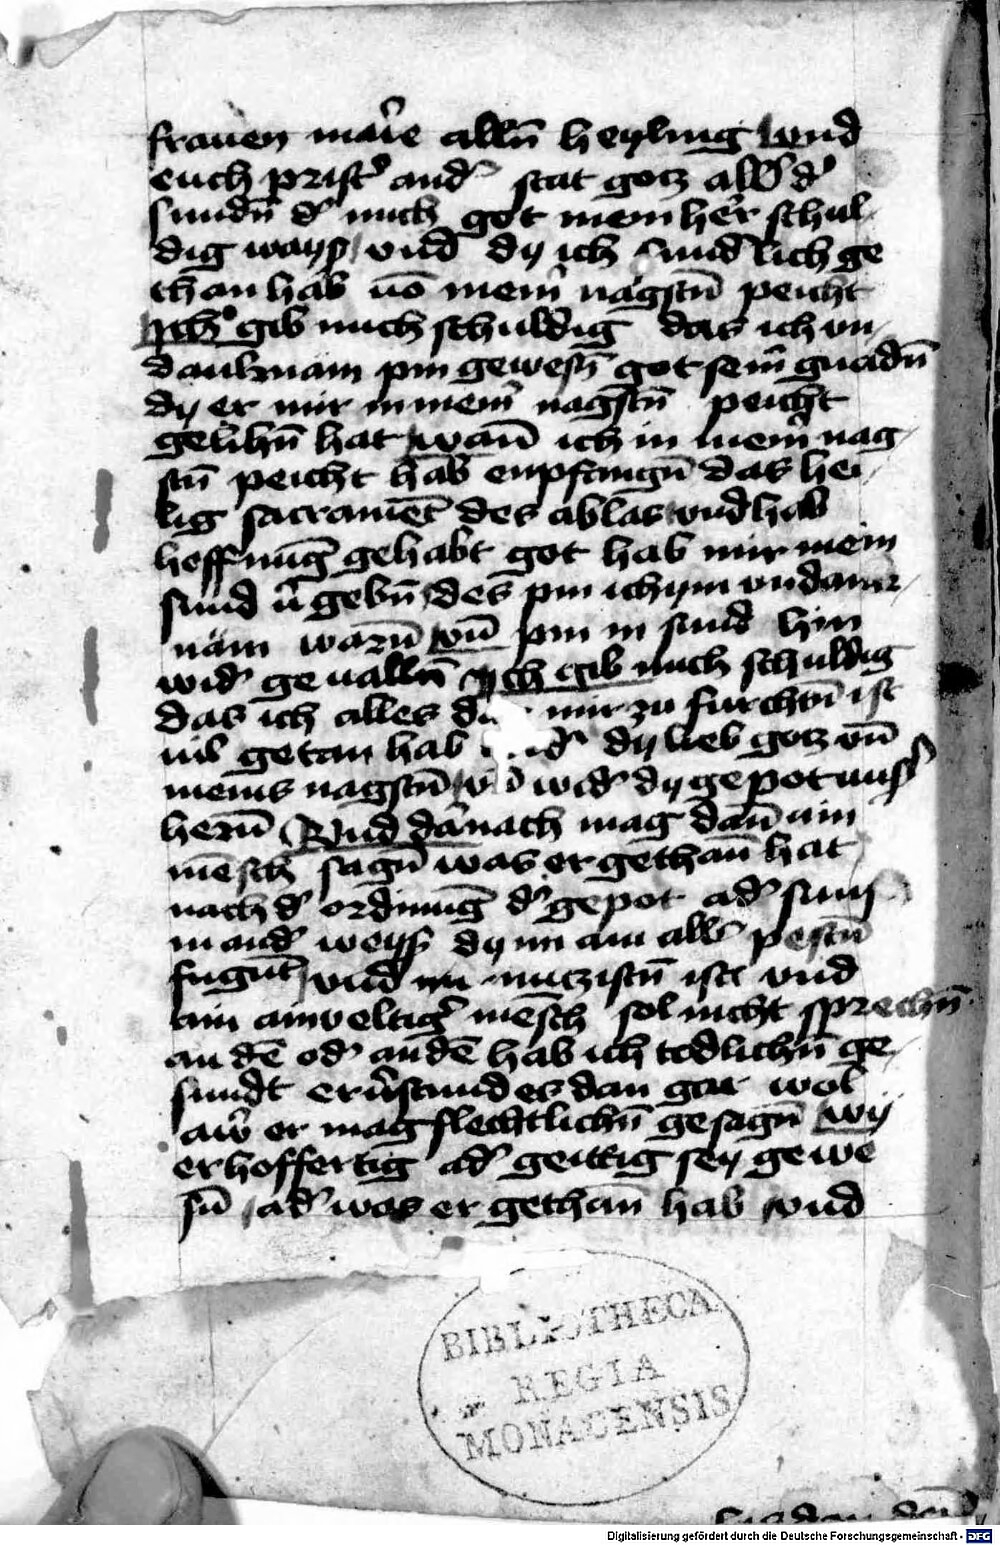 frauen marie alln̄ heyling vnd
euch prist͛ and͛ stat gotz all͛ d͛
sundn̄ d͛ mich got mein her schul
dig wayß vnd dy ich sundlich ge
than hab vō mein͛ nagstn̄ peicht
Ich gib mich schuldig das ich vn
danknam pin gewesn̄ got sein͛ gnadn̄
dy er mir in mein͛ nagstn̄ peicht
gelihn̄ hat wan̄ ich in mein͛ nag
stn̄ peicht hab enpfangn̄ das hei
lig sacramēt des ablas vnd hab
hoffnung gehabt got hab mir mein
sund v͛gebn̄ des pin ich ym vndanck
nam warn̄ vn̄ pin in sund hin
wid͛ geualln̄ Ich gib mich schuldig
das ich alles d mir zu furchtn̄ ist
nit getan hab d͛ dy lieb gotz vn̄
meins nagstn̄ wid͛ dy gepot vns͛s
hern̄ Vnd darnach mag dan̄ ain
mēsch sagn̄ was er gethan̄ hat
nach d͛ ordnung d͛ gepot ad͛ sunst
in and͛ weyß dy im am all͛ pestn̄
fugunt vnd im nutzistn̄ ist vnd
ain ainueltig͛ mēsch sol nicht sprechn̄
an dē od͛ an dē hab ich todlichn̄ ge
sundt er v͛stund es dan gar wol
aw͛ er mag slechtlichn̄ gesagn̄ wy
er hoffertig ad͛ geittig sey gewe
sn̄ ad͛ was er gethan̄ hab vnd
BIBLIOTHECA
REGIA
MONACENSIS
Digitalisierung gefördert durch die Deutsche Forschungsgemeinschaft - DFG